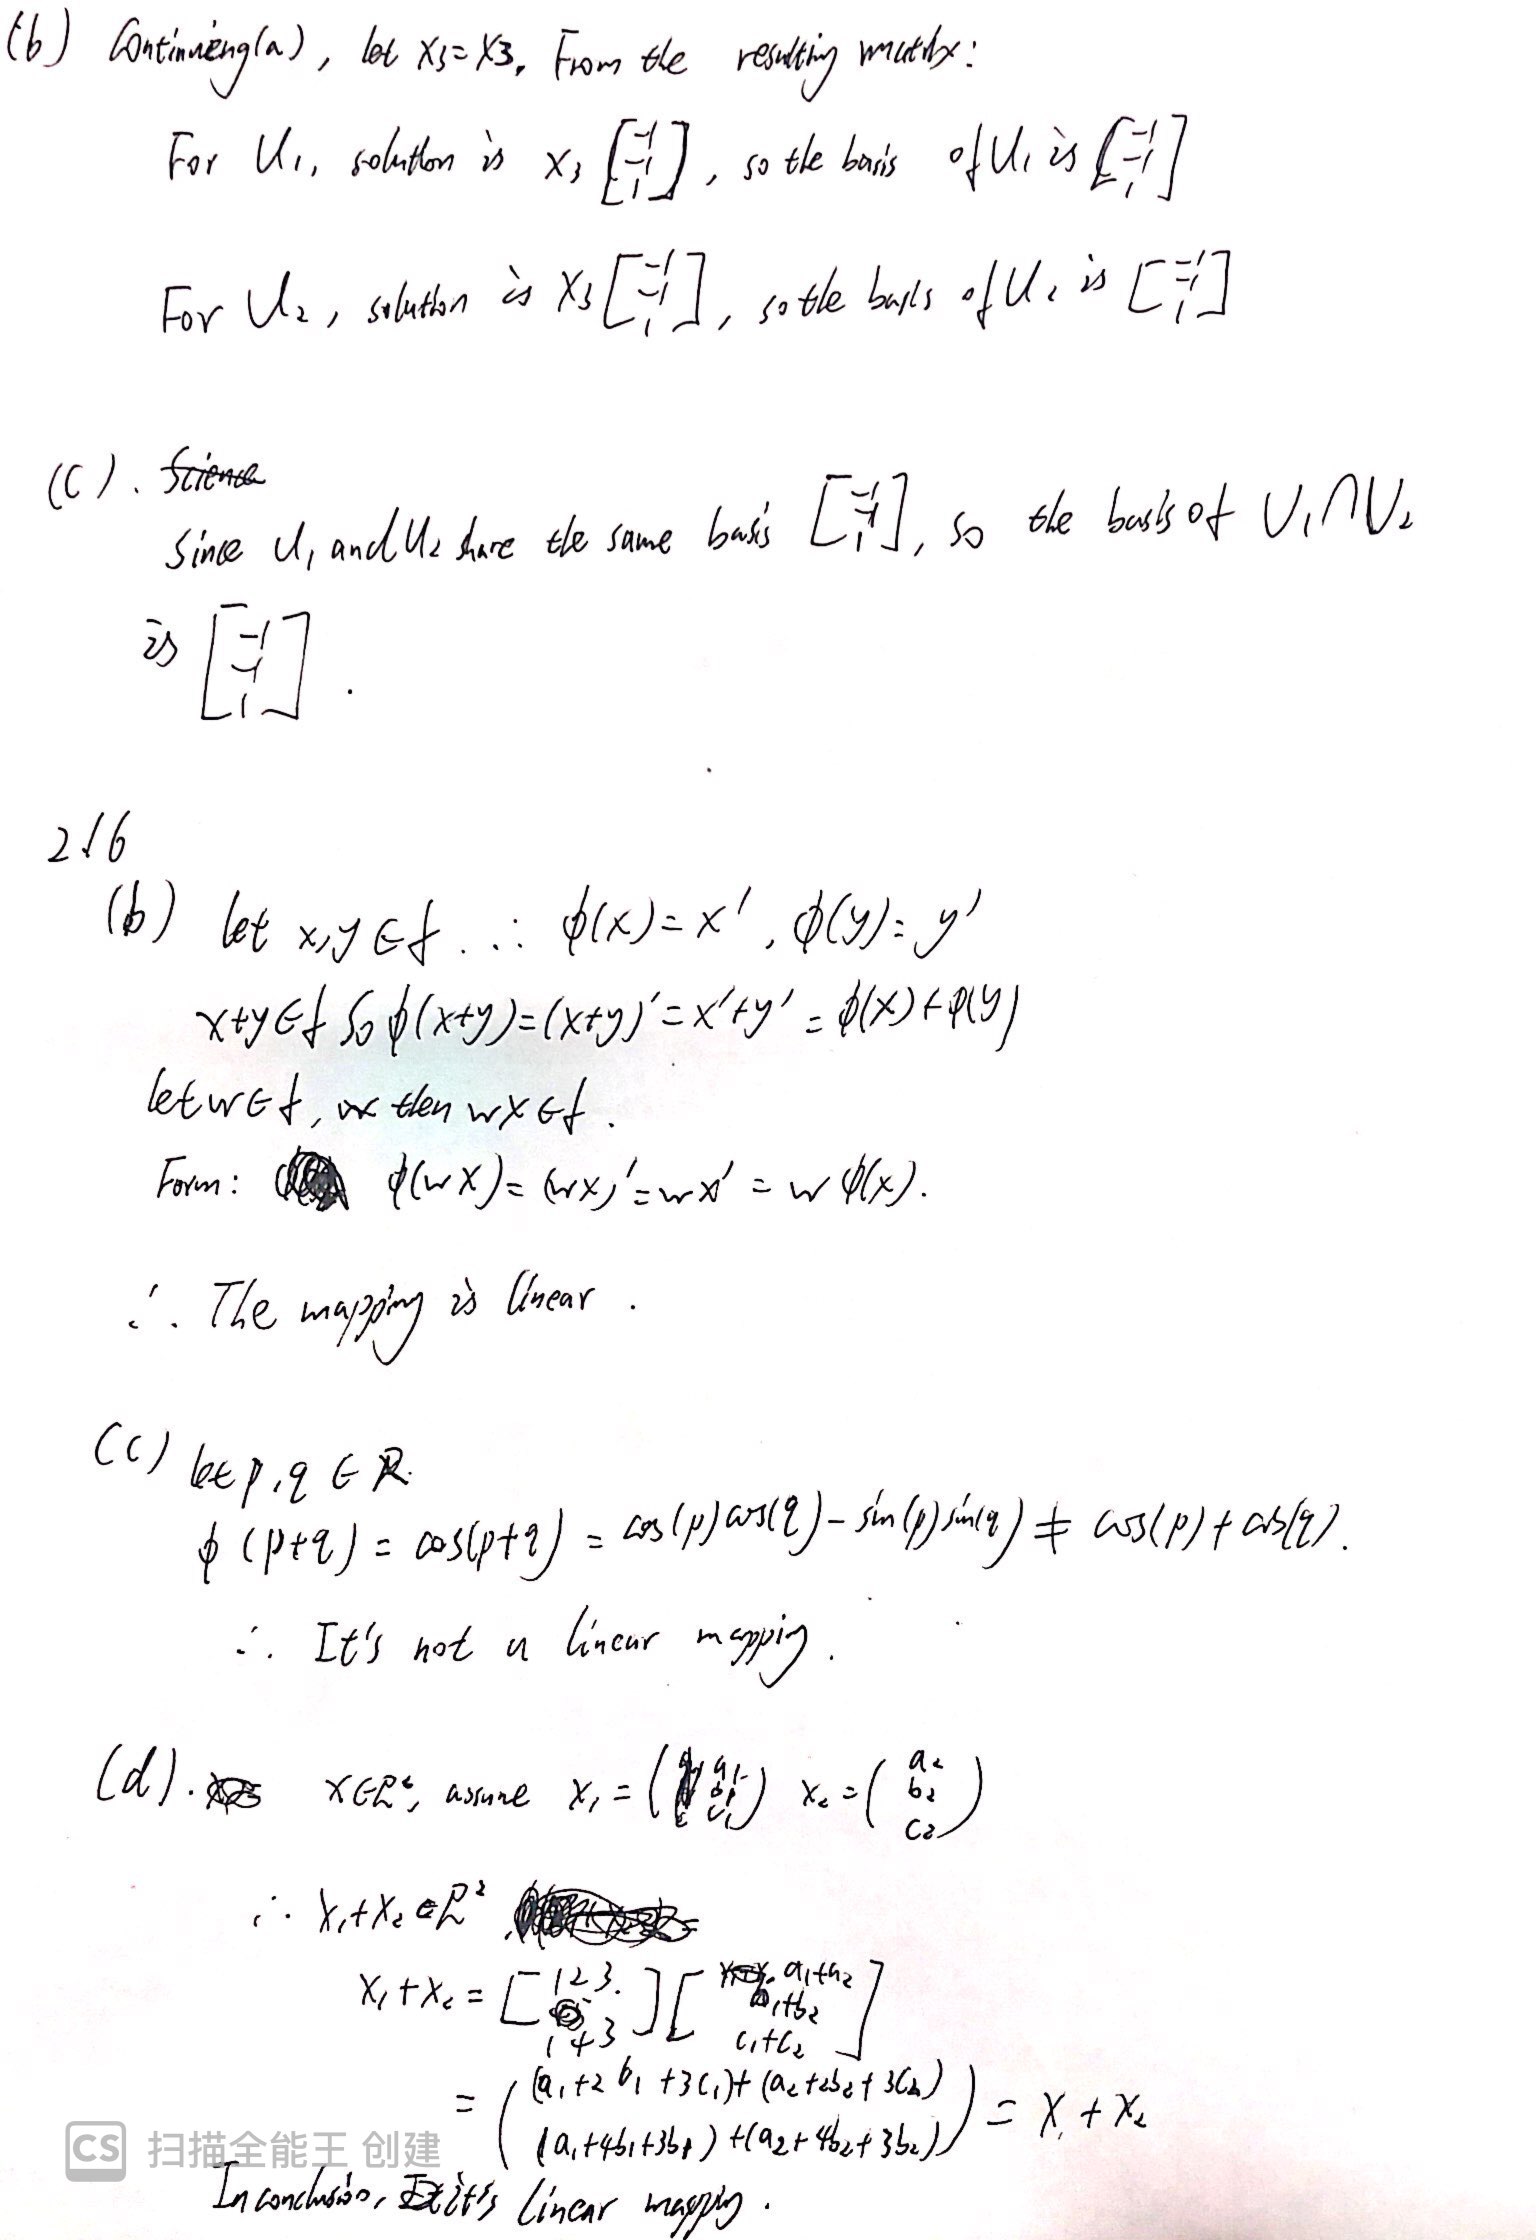 (b) Continuieng(a), let x₃=x₃. From the resulting matrix:
For U₁, solution is x₃ [-1 -1 1], so the basis of U₁ is [-1 -1 1]
For U₂, solution is x₃ [-1 -1 1], so the basis of U₂ is [-1 -1 1]
(C). Science
Since U₁ and U₂ share the same basis [-1 -1 1], so the basis of U₁∩U₂
is [-1 -1 1].
216
(b) let x,y ∈ f. ∴ ϕ(x)=x', ϕ(y)=y'
x+y∈f So ϕ(x+y)=(x+y)'=x'+y'=ϕ(x)+ϕ(y)
let w∈f, then wx∈f.
Form: ϕ(wx)=(wx)'=wx'=wϕ(x).
∴ The mapping is linear.
(C) let p,q ∈ R.
ϕ(p+q)=cos(p+q)=cos(p)cos(q)-sin(p)sin(q)≠cos(p)+cos(q).
∴ It's not a linear mapping.
(d). x∈R², assume x₁=(a₁ b₁ c₁) x₂=(a₂ b₂ c₂)
∴ x₁+x₂∈R²
x₁+x₂=[1 2 3. 1 4 3][a₁+a₂ b₁+b₂ c₁+c₂]
=((a₁+2b₁+3c₁)+(a₂+2b₂+3c₂) (a₁+4b₁+3b₁)+(a₂+4b₂+3b₂))=x₁+x₂
In conclusion, it's linear mapping.
CS 扫描全能王 创建